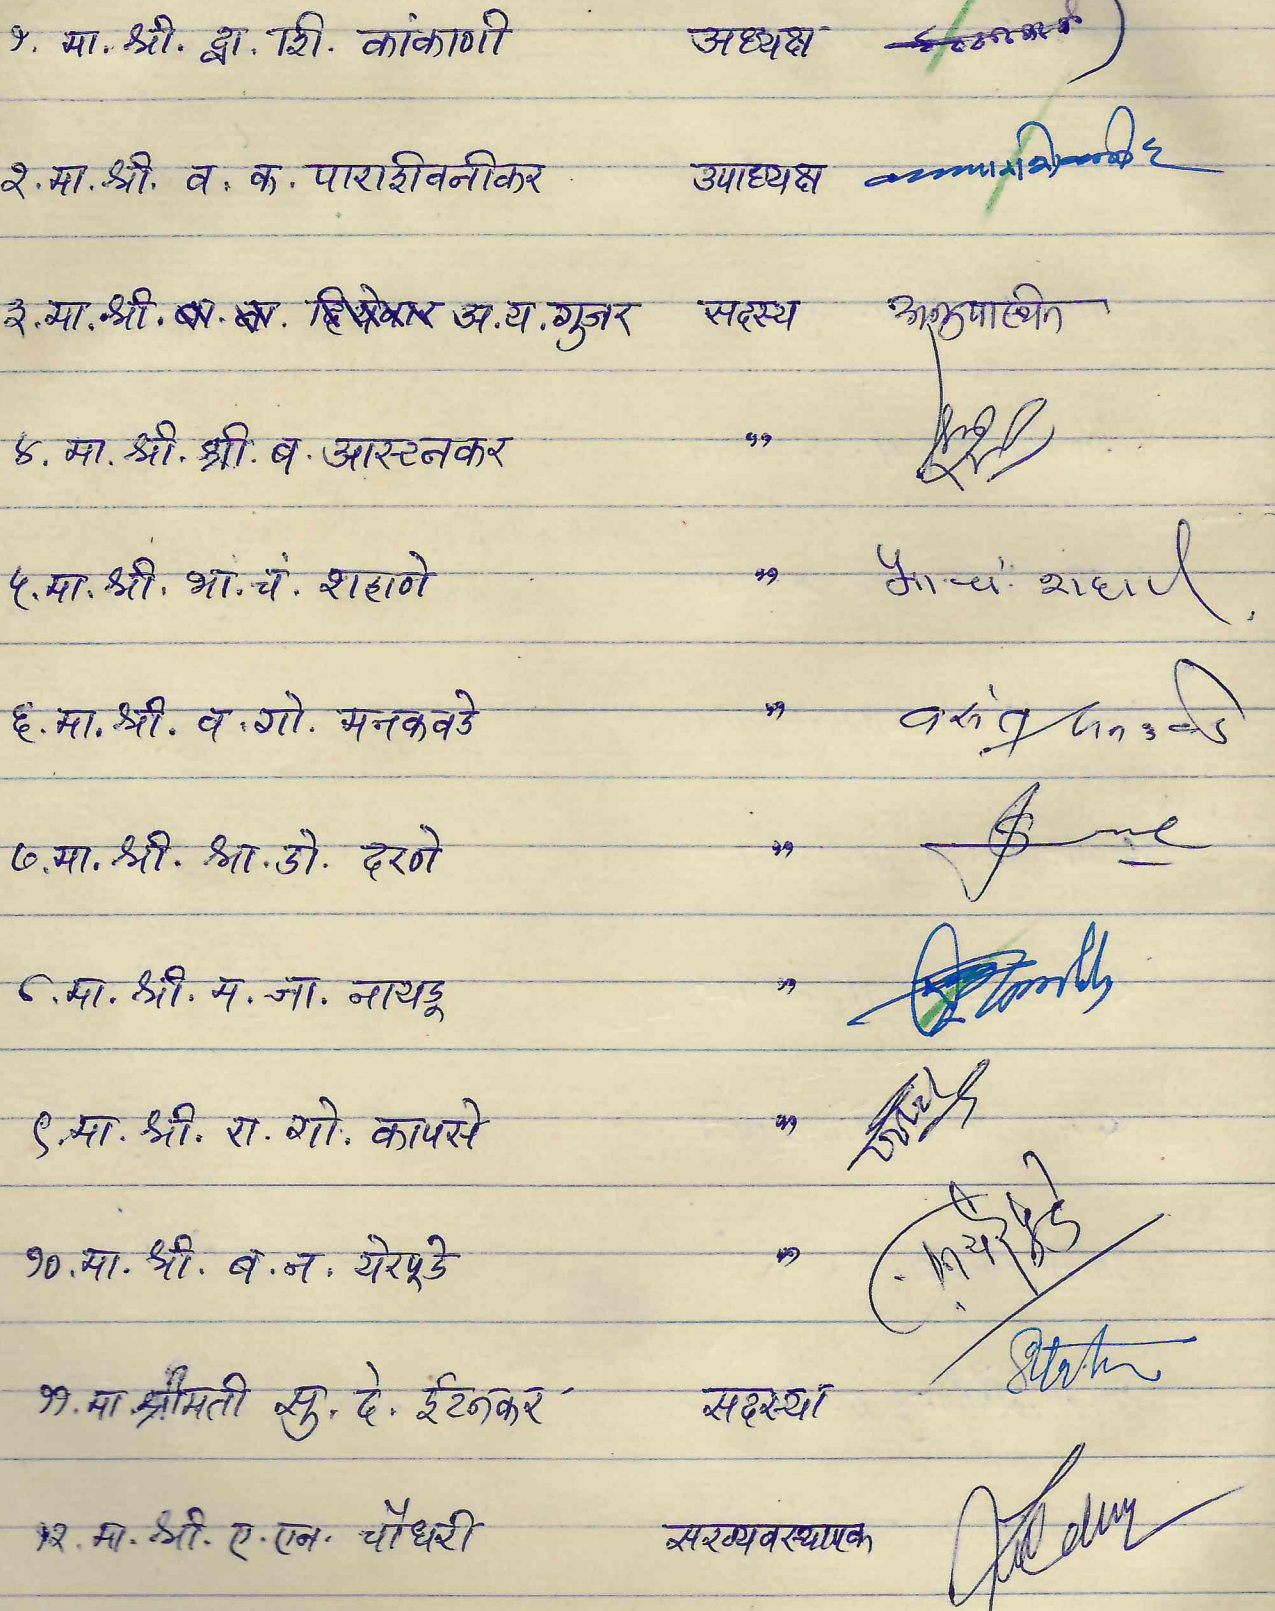 १. मा. श्री. द्वा. शि. कांकाणी अध्यक्ष
२. मा. श्री. व. क. पाराशीवनीकर उपाध्यक्ष
३. मा. श्री. अ. य. गुजर सदस्य अनुपास्थित
४. मा. श्री. श्री. ब. आस्टनकर "
५. मा. श्री. भा. चं. शहाणे " भा. चं. शहाणे
६. मा. श्री. व. गो. मनकवडे "
७. मा. श्री. श्रा. डो. दरणे "
८. मा. श्री. म. जा. नायडू "
९. मा. श्री. रा. गो. कापसे "
१०. मा. श्री. ब. न. येरपूडे "
११. मा. श्रीमती सु. दे. ईटनकर सदस्या
१२. मा. श्री. ए. एन. चौधरी सरव्यवस्थापक